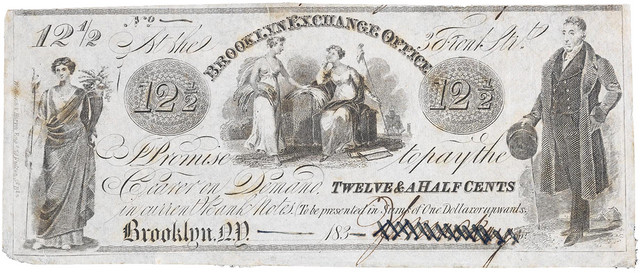 12 1/2 At the BROOKLYN EXCHANGE OFFICE 3 Front Str.
12 1/2 12 1/2
I Promise to pay the
Bearer on Demand, TWELVE & A HALF CENTS
in current Bank Notes. To be presented in Sums of One Dollar or upwards.
Brooklyn, NY. 183